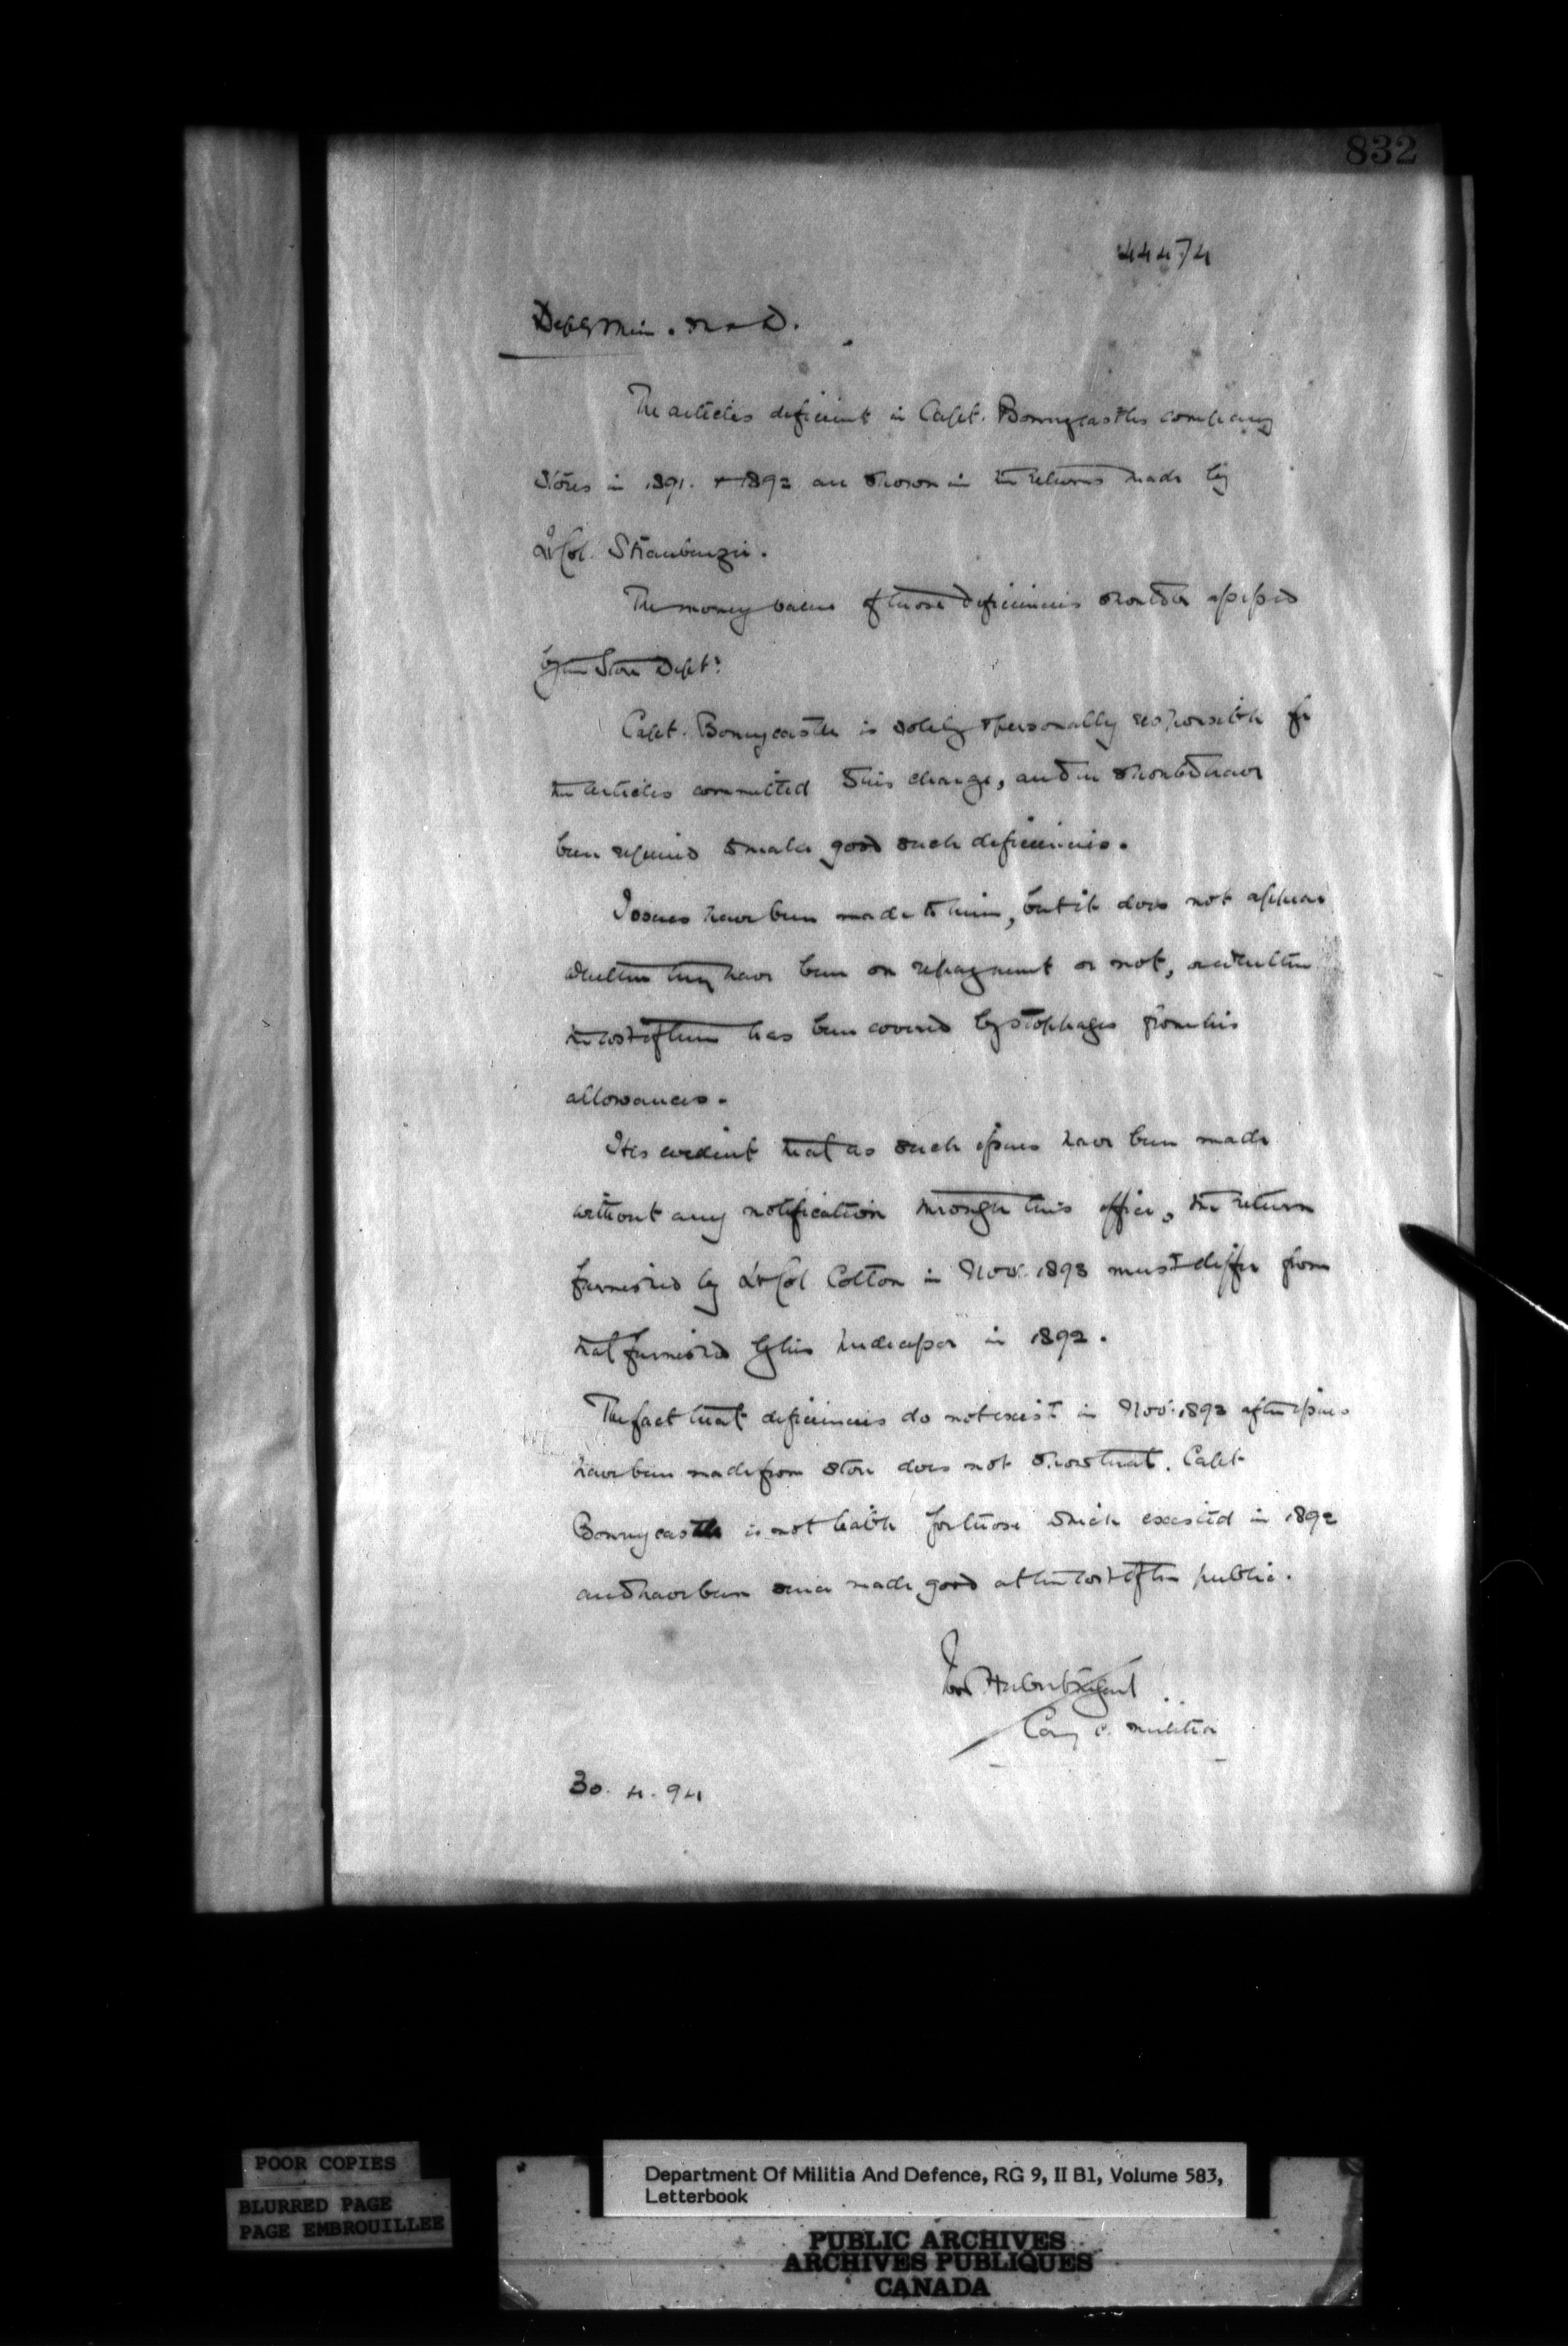 832
44474
Depy Min. M & D.
The articles deficient in Capt. Bonnycastles company
Stores in 1891. & 1892 are shown in the returns made by
Lt Col. Straubenzie.
The money value of those deficiencies should be assessed
by the Store Dept:
Capt. Bonnycastle is solely & personally responsible for
the articles committed to his charge, and he should have
been required to make good such deficiencies.
Issues have been made to him, but it does not appear
whether they have been on repayment or not, or whether
the cost of them has been covered by stoppages from his
allowances.
It is evident that as such issues have been made
without any notification through this office, the return
furnished by Lt Col Cotton in Nov. 1893 must differ from
that furnished by his predecessor in 1892.
The fact that deficiencies do not exist in Nov. 1893 after issues
have been made from store does not show that Capt
Bonnycastle is not liable for those which existed in 1892
and have been since made good at the cost of the public.
Ivor Herbert
Comg C. Militia
30. 4. 94
POOR COPIES
BLURRED PAGE
PAGE EMBROUILLEE
Department Of Militia And Defence, RG 9, II B1, Volume 583,
Letterbook
PUBLIC ARCHIVES
ARCHIVES PUBLIQUES
CANADA